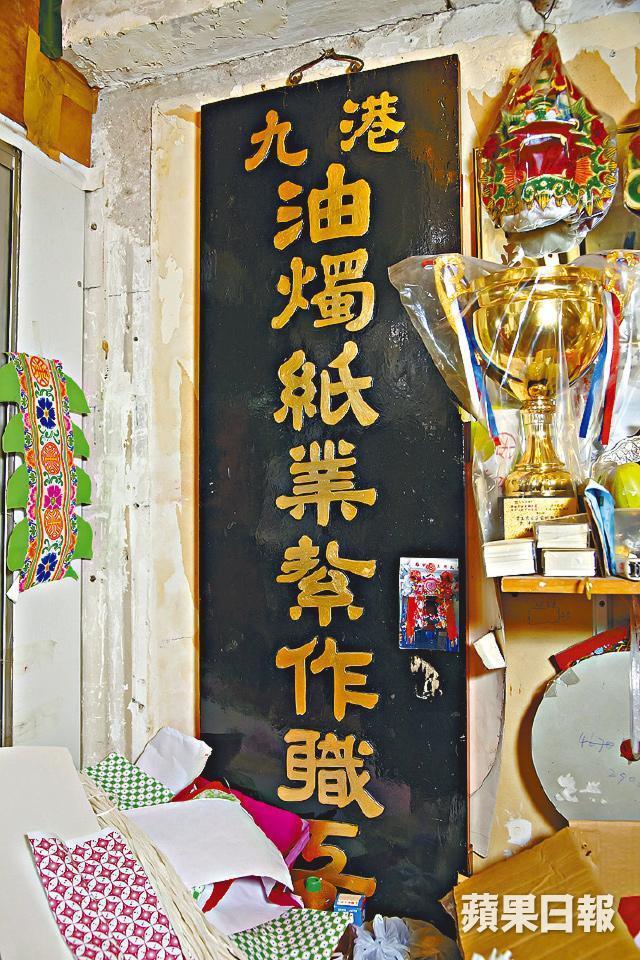 港九
油燭紙業紮作職工
蘋果日報